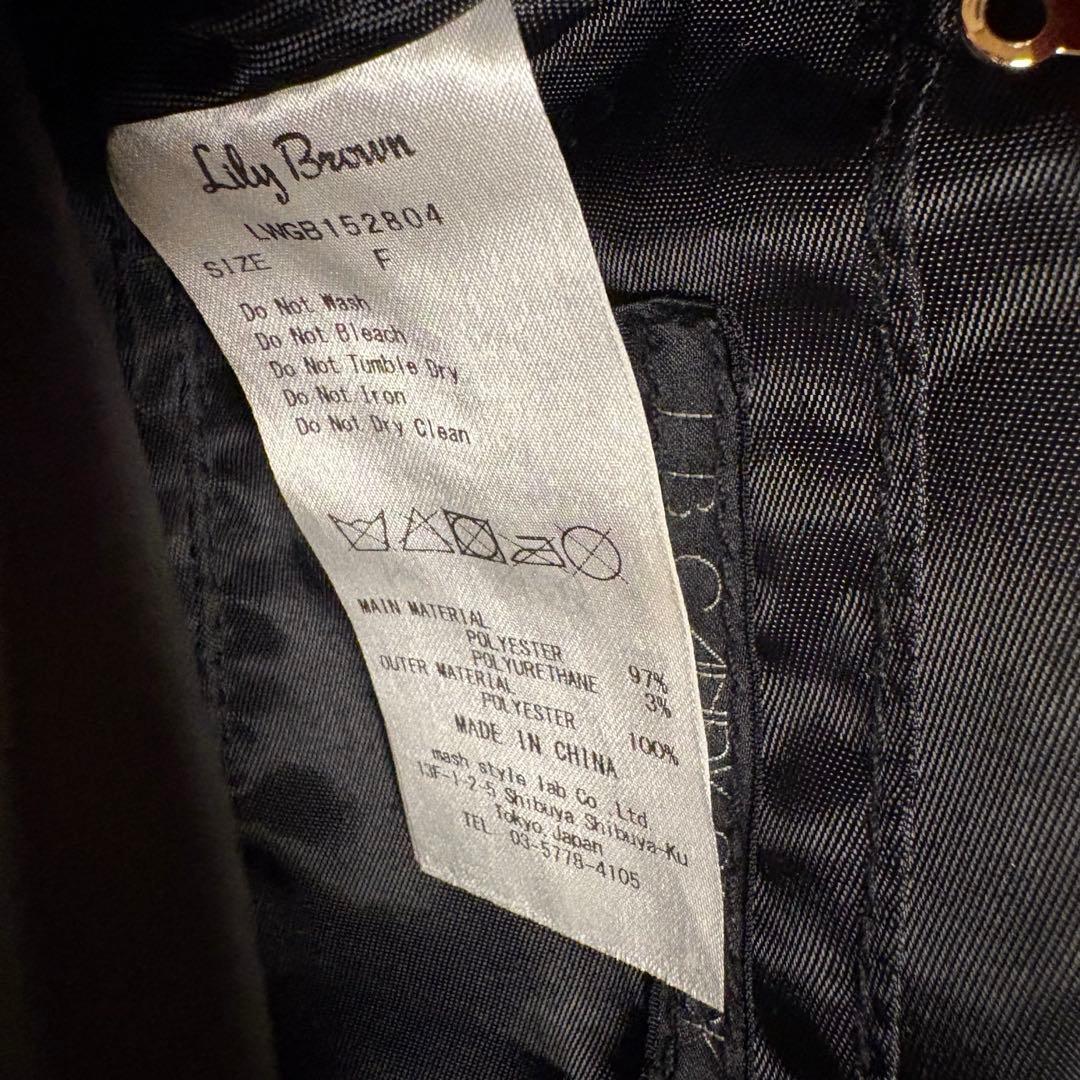 Lily Brown
LWGB152804
SIZE F
Do Not Wash
Do Not Bleach
Do Not Tumble Dry
Do Not Iron
Do Not Dry Clean
MAIN MATERIAL
POLYESTER 97%
POLYURETHANE 3%
OUTER MATERIAL
POLYESTER 100%
MADE IN CHINA
mash style lab Co.,Ltd.
13F-1-2-5 Shibuya Shibuya-Ku
Tokyo,Japan
TEL 03-5778-4105